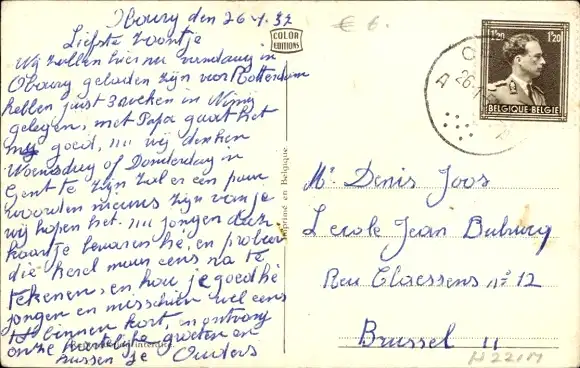 Obourg den 26.1.37
Liefste zoontje
Wij zullen hier nu vandaag in
Obourg geladen zijn voor Rotterdam
hebben juist 3 weken in Nimy
gelegen, met Papa gaat het
goed, nu wij denken
Woensdag of Donderdag in
Gent te zijn zal er een paar
woorden nieuws zijn van je
wij hopen het. nu jongen deze
kaartje bewaren hé, en probeer
die kerel maar eens na te
tekenen, en hou je goed hé
jongen en misschien wel eens
tot binnen kort, en ontvang
onze hartelijke groeten en
kussen je Ouders
COLOR
EDITIONS
Imprimé en Belgique
€ 6.
1F20 1F20
BELGIQUE-BELGIE
26
Mr Denis Joos
Lecole Jean Bubucq
Reu Claessens no 12
Brussel 11
H221M